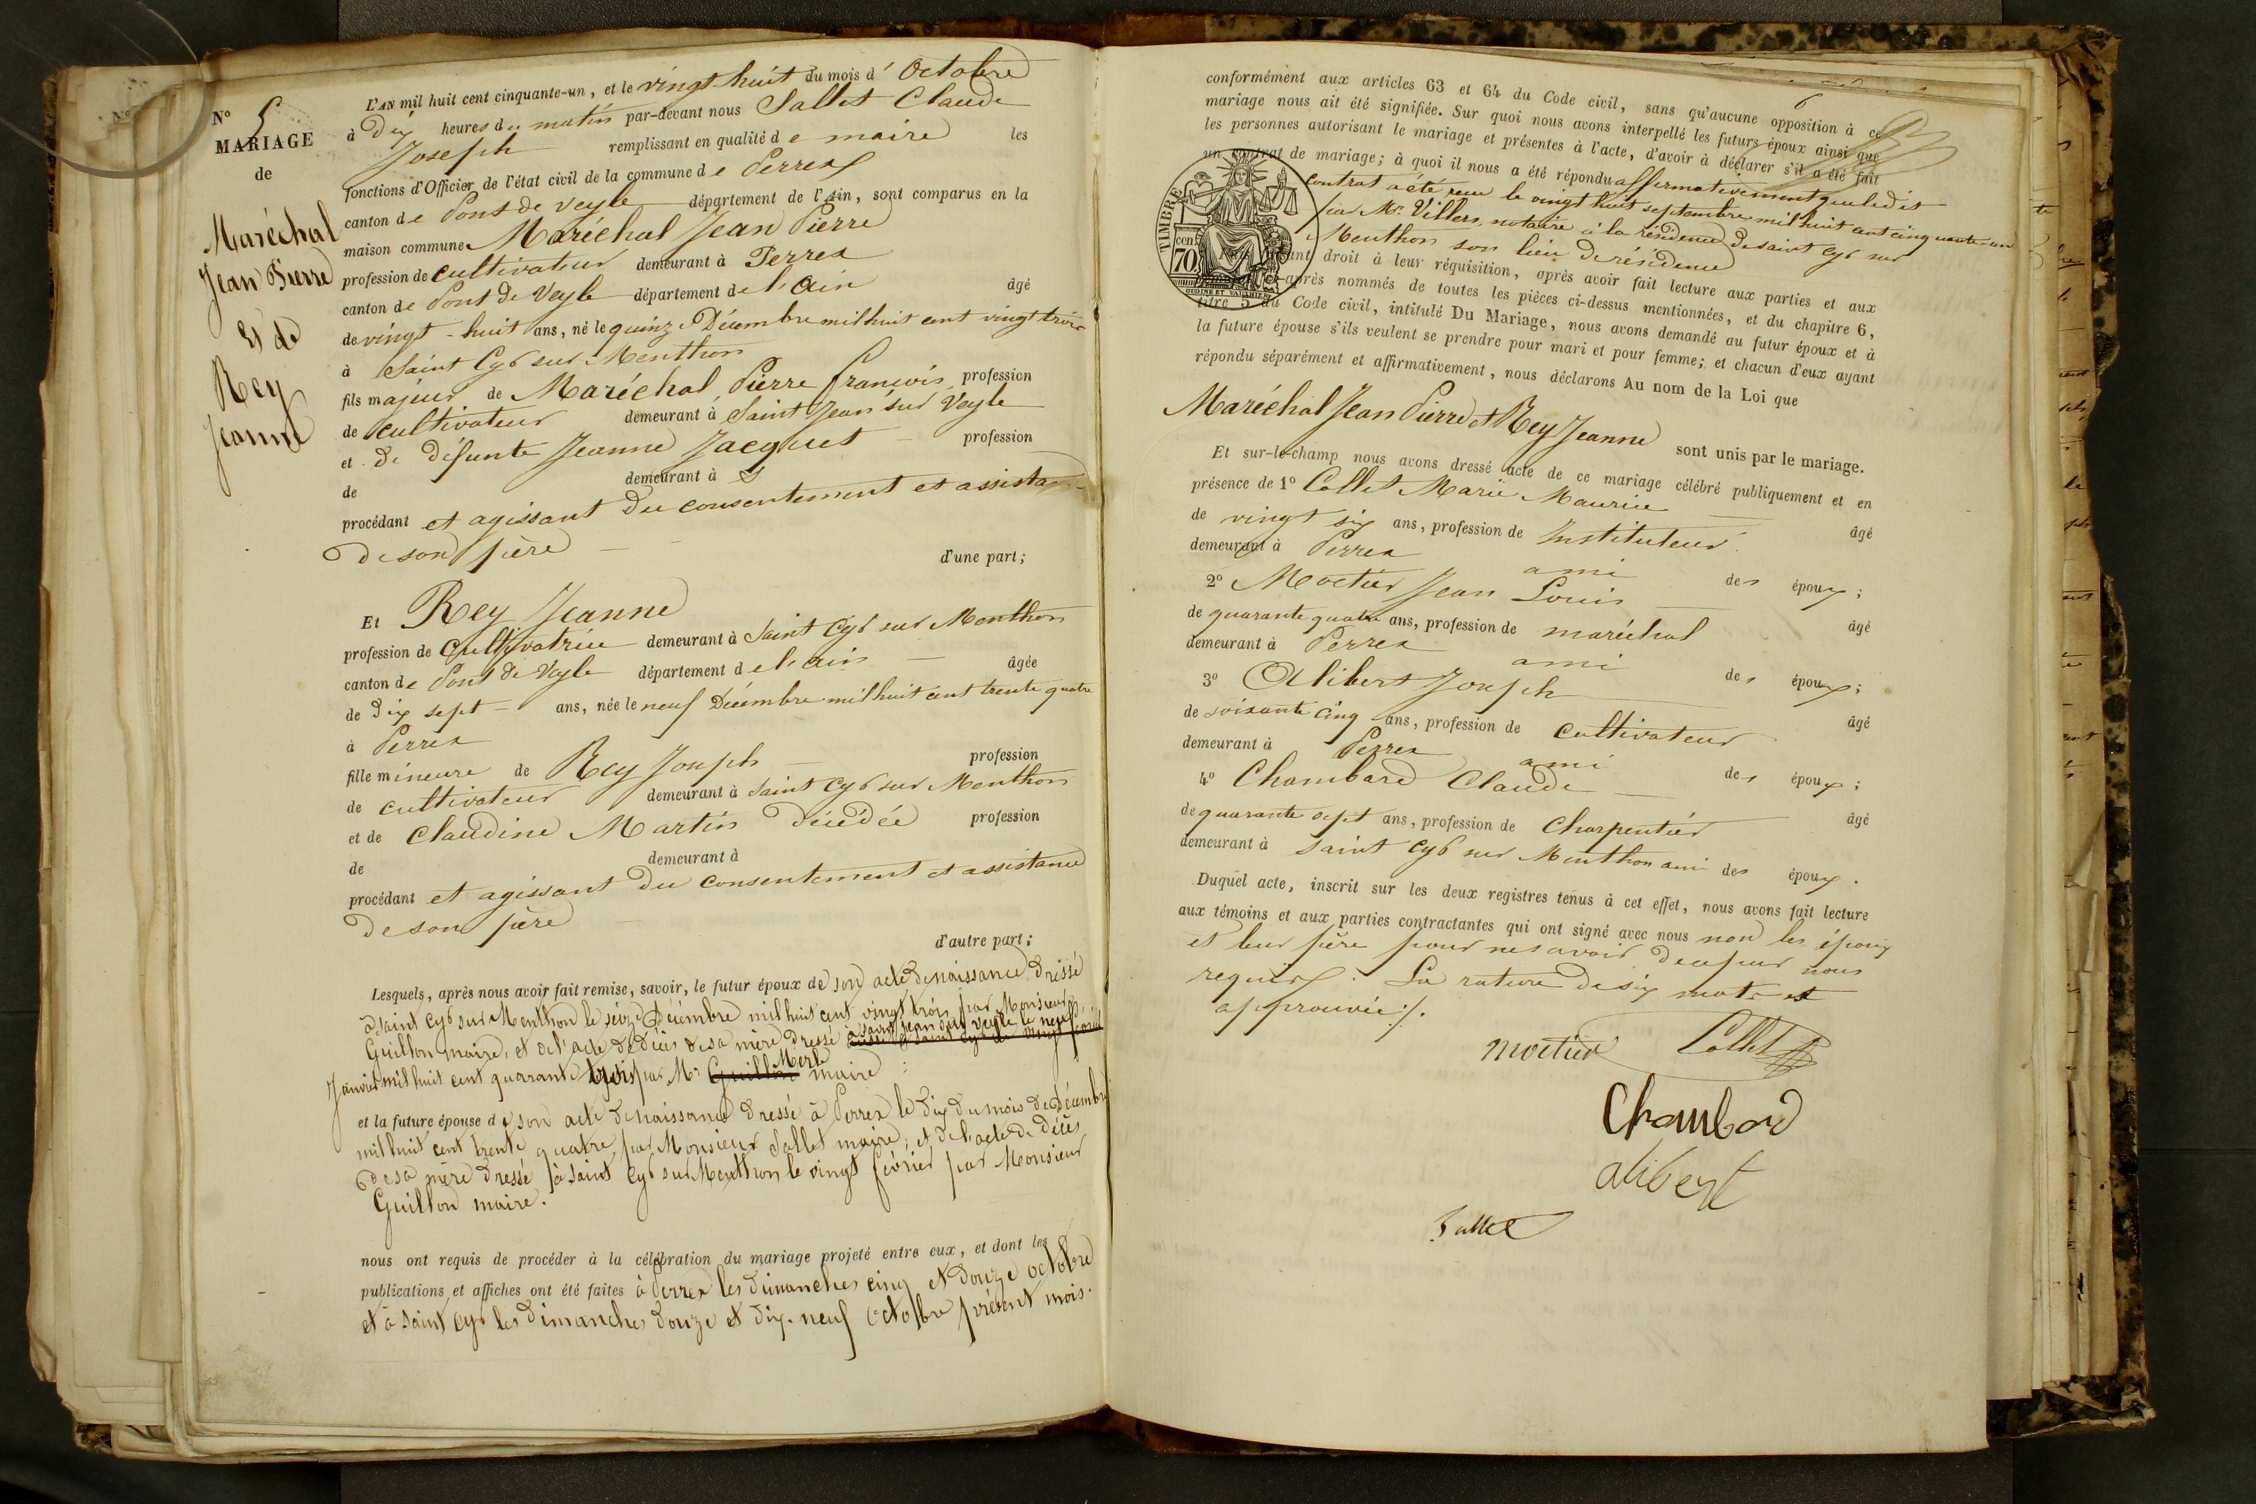 N° 5
MARIAGE
de
Maréchal
Jean Pierre
Et de
Rey
Jeanne
L'AN mil huit cent cinquante-un, et le vingt huit du mois d'Octobre
à Dix heures du matin par-devant nous Sallet Claude
Joseph remplissant en qualité de maire les
fonctions d'Officier de l'état civil de la commune de Perrex
canton de Pont de Veyle département de l'Ain, sont comparus en la
maison commune Maréchal Jean Pierre
profession de cultivateur demeurant à Perrex
canton de Pont de Veyle département de l'ain âgé
de vingt-huit ans, né le quinze Décembre mil huit cent vingt trois
à Saint Cyr sur Menthon
fils majeur de Maréchal Pierre françois profession
de cultivateur demeurant à Saint Jean sur Veyle
et de défunte Jeanne Jacquet profession
de demeurant à
procédant et agissant du consentement et assistance
de son père d'une part;
Et Rey Jeanne
profession de Cultivatrice demeurant à Saint Cyr sur Menthon
canton de Pont de Veyle département de l'ain âgée
de dix sept ans, née le neuf Décembre mil huit cent trente quatre
à Perrex
fille mineure de Rey Joseph profession
de cultivateur demeurant à Saint Cyr sur Menthon
et de Claudine Martin décédée profession
de demeurant à
procédant et agissant du consentement et assistance
de son père
d'autre part;
Lesquels, après nous avoir fait remise, savoir, le futur époux de son acte de naissance dressé
à Saint Cyr sur Menthon le seize Décembre mil huit cent vingt trois par Monsieur
Guillon maire, et de l'acte de décès de sa mère dressé à Saint Jean sur Veyle le neuf
Janvier mil huit cent quarante trois par Mr Guillon Morle maire
et la future épouse de son acte de naissance dressé à Perrex le dix du mois de Décembre
mil huit cent trente quatre, par Monsieur Sallet maire; et de l'acte de décès
de sa mère dressé à Saint Cyr sur Menthon le vingt février par Monsieur
Guillon maire.
nous ont requis de procéder à la célébration du mariage projeté entre eux, et dont les
publications et affiches ont été faites à Perrex les dimanches cinq et douze octobre
et à Saint Cyr les dimanches douze et dix-neuf octobre présent mois.
6
conformément aux articles 63 et 64 du Code civil, sans qu'aucune opposition à ce
mariage nous ait été signifiée. Sur quoi nous avons interpellé les futurs époux ainsi que
les personnes autorisant le mariage et présentes à l'acte, d'avoir à déclarer s'il a été fait
un contrat de mariage; à quoi il nous a été répondu affirmativement que ledit
contrat a été reçu le vingt huit septembre mil huit cent cinquante un
par Mr Villers, notaire à la résidence de saint Cyr sur
Menthon son lieu de résidence
TIMBRE
cen 70
droit à leur réquisition, après avoir fait lecture aux parties et aux
après nommés de toutes les pièces ci-dessus mentionnées, et du chapitre 6,
titre 5 du Code civil, intitulé Du Mariage, nous avons demandé au futur époux et à
la future épouse s'ils veulent se prendre pour mari et pour femme; et chacun d'eux ayant
répondu séparément et affirmativement, nous déclarons Au nom de la Loi que
Maréchal Jean Pierre et Rey Jeanne sont unis par le mariage.
Et sur-le-champ nous avons dressé acte de ce mariage célébré publiquement et en
présence de 1° Collet Marie Maurice âgé
de vingt six ans, profession de Instituteur
demeurant à Perrex ami des époux;
2° Moctier Jean Louis âgé
de quarante quatre ans, profession de maréchal
demeurant à Perrex ami des époux;
3° Alibert Joseph âgé
de soixante cinq ans, profession de cultivateur
demeurant à Perrex ami des époux;
4° Chambard Claude âgé
de quarante sept ans, profession de Charpentier
demeurant à Saint Cyr sur Menthon ami des époux.
Duquel acte, inscrit sur les deux registres tenus à cet effet, nous avons fait lecture
aux témoins et aux parties contractantes qui ont signé avec nous non les époux
et leur père pour ne savoir de ce par nous
requis. La rature de six mots est
approuvée.
Moctier Collet
Chambard
alibert
Sallet